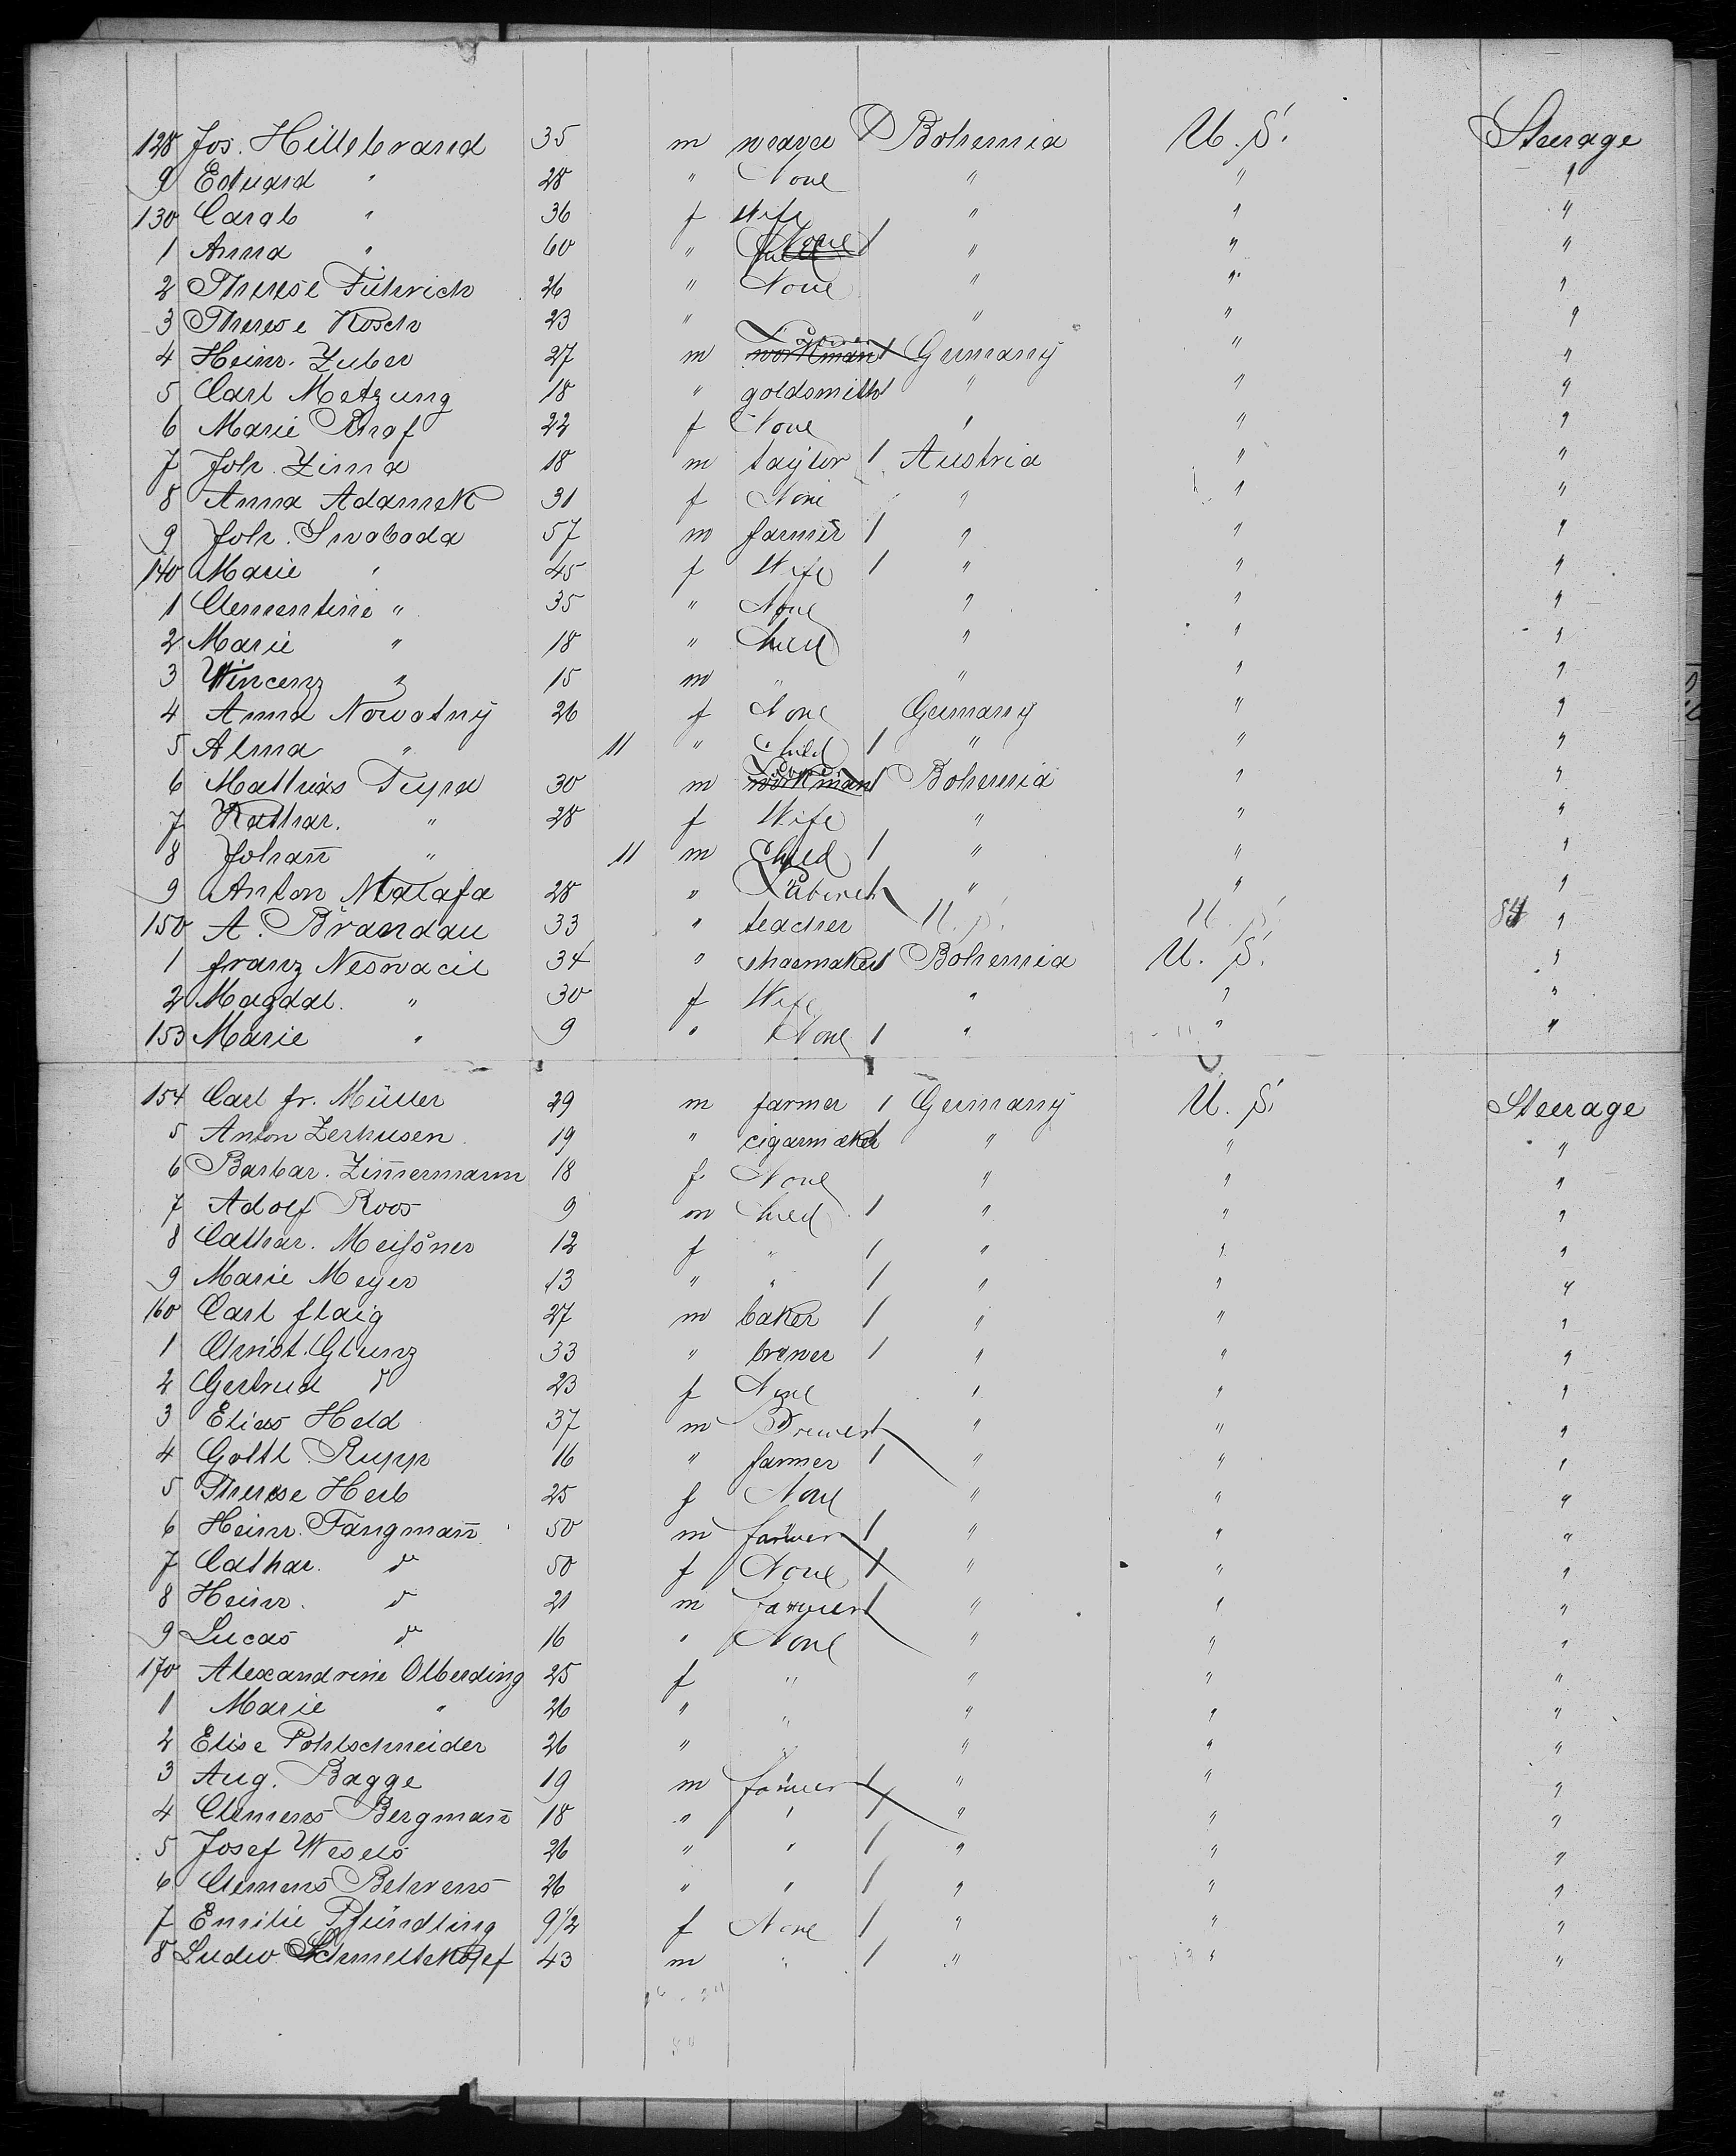 128 Jos. Hillebrand 35 m weaver Bohemia U.S. Steerage
9 Eduard " 28 " None " " "
130 Carol " 36 f Wife " " "
1 Anna " 60 " None " " "
2 Therese Führich 26 " None " " "
3 Therese Kosch 23 " " " "
4 Heinr. Zuber 27 m workman Germany " "
5 Carl Metzung 18 " goldsmith " " "
6 Marie Knaf 22 f None " " "
7 Joh. Zima 18 m taylor Austria " "
8 Anna Adamek 31 f None " " "
9 Joh. Swoboda 57 m farmer " " "
140 Marie " 45 f Wife " " "
1 Clementine " 35 " None " " "
2 Marie " 18 " Child " " "
3 Wincenz " 15 m " " " "
4 Anna Nowotny 26 f None Germany " "
5 Alma " 11 " Child " " "
6 Mathias Tupa 30 m workman Bohemia " "
7 Kathar. " 28 f Wife " " "
8 Johan̄ " 11 m Child " " "
9 Anton Malafa 28 " Laborer " " "
150 A. Brandau 33 " teacher U.S. U.S. 84 "
1 franz Neswacil 34 " shoemaker Bohemia U.S. "
2 Magdal. " 30 f Wife " " "
153 Marie " 9 " None " " "
154 Carl fr. Müller 29 m farmer Germany U.S. Steerage
5 Anton Zerhusen 19 " cigarmaker " " "
6 Barbar. Zim̄ermann 18 f. None " " "
7 Adolf Roos 9 m Child " " "
8 Cathar. Meißner 12 f " " " "
9 Marie Meyer 13 " " " " "
160 Carl flaig 27 m baker " " "
1 Christ. Glunz 33 " brewer " " "
2 Gertrud do 23 f None " " "
3 Elias Held 37 m Brewer " " "
4 Gottl. Rupp 16 " farmer " " "
5 Therese Herb 25 f None " " "
6 Heinr. Fangman̄ 50 m farmer " " "
7 Cathar. do 50 f None " " "
8 Heinr. do 21 m farmer " " "
9 Lucas do 16 " None " " "
170 Alexandrine Olberding 25 f " " " "
1 Marie " 26 " " " " "
2 Elise Pohlschneider 26 " " " " "
3 Aug. Bagge 19 m farmer " " "
4 Clemens Bergman̄ 18 " " " " "
5 Josef Wesels 26 " " " " "
6 Clemens Behrens 26 " " " " "
7 Emilie Pfündling 9 1/2 f None " " "
8 Ludw. 43 m " " " "